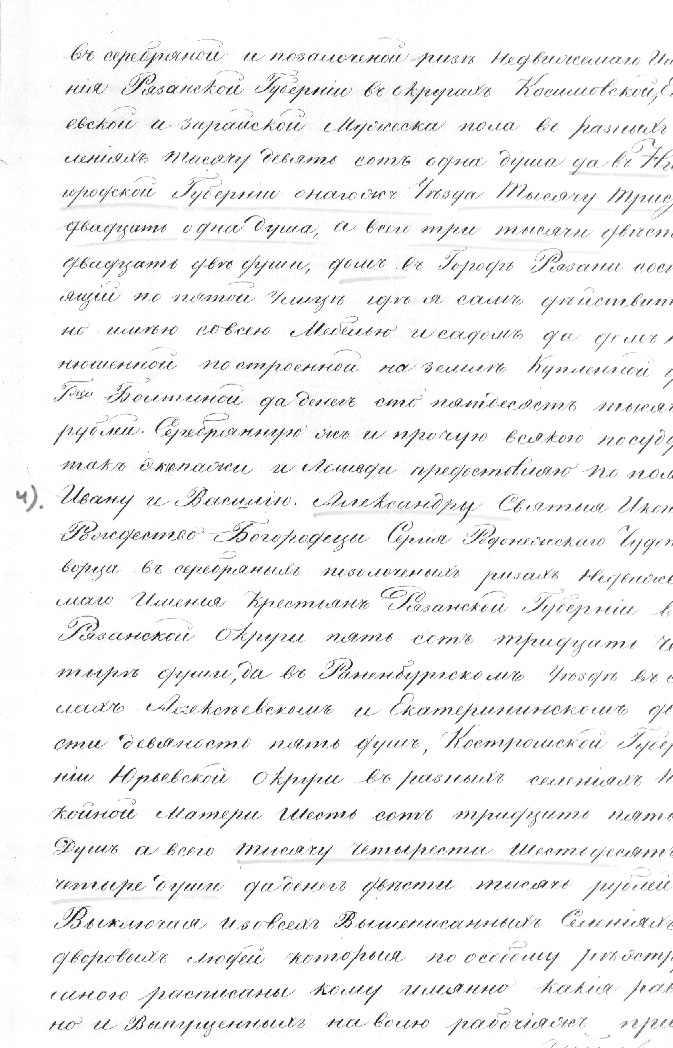 въ серебряной и позалоченой ризѣ недвижемаго Им
нія Рязанской Губерніи въ округахъ Косимовской, Е
евской и Зарайской Мужеска пола въ разныхъ
леніяхъ тысячу девять сотъ одна душа да въ Ни
городской Губерніи онагожъ Уѣзда Тысячу трис
двадцать одна душа, а всего три тысячи двѣст
двадцать двѣ души, домъ въ Городѣ Рязани сос
ящій по пятой улицѣ гдѣ я самъ дѣйствит
но имѣю совсею Мебелью и садомъ да домъ к
нюшенной построенной на землѣ Купленной
Гжи Болтиной да денегъ сто пятдесятъ тысяч
рублей. Серебрянную жъ и прочую всякою посуду
такъ экепажи и Лошеди предоставляю по пол
4). Ивану и Василію. Александру Святыя Икон
Рождество Богородицы Сергия Родонежскаго Чудот
ворца въ серебряныхъ позолоченыхъ ризахъ Недвиже
маго Имения Крестьянъ Рязанской Губерніи в
Рязанской округи пять сотъ тридцать че
тырѣ души, да въ Раненбургскомъ Уѣздѣ въ с
лахъ Алексѣевскомъ и Екатерининскомъ дв
сти девяносто пять душъ, Костромской Губер
ніи Юрьевской округи въ разныхъ селеніяхъ п
койной Матери Шесть сотъ тридцать пять
Душъ а всего тысячу четыреста шестьдесятъ
четыре души да денегъ двѣсти тысячъ рублей
Выключая изовсехъ Вышеписанныхъ Селеніяхъ
дворовыхъ людей которыя по особому реэстр
мною расписаны кому имянно какія рав
но и Выпущенныхъ на волю рабочіяжъ при